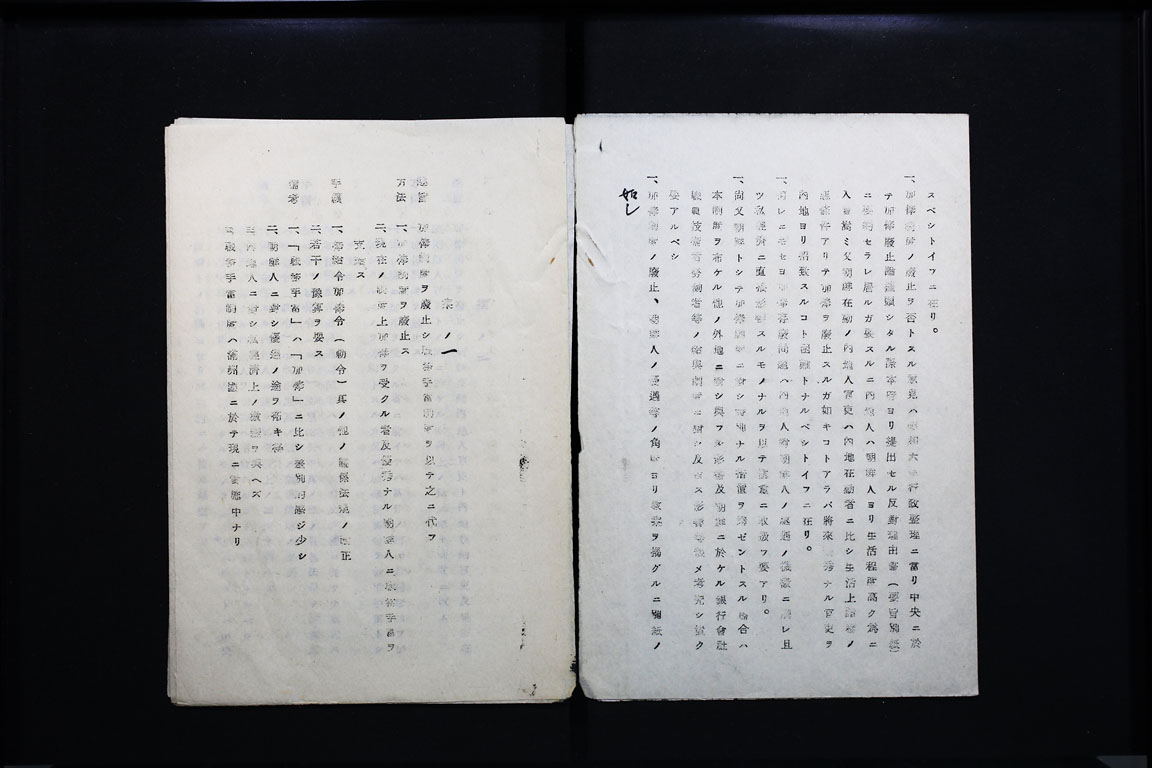 スベシトイフニ在リ。
一、加俸制度ノ廢止ヲ否トスル意見ハ昭和六年行政整理ニ當リ中央ニ於
テ加俸廢止論擡頭シタル際本府ヨリ提出セル反對理由書(要旨別紙)
ニ要約セラレ居ルガ要スルニ內地人ハ朝鮮人ヨリ生活程度高ク爲ニ
入費嵩ミ又朝鮮在勤ノ內地人官吏ハ內地在勤者ニ比シ生活上諸種ノ
惡條件アリテ加俸ヲ廢止スルガ如キコトアラバ將來優秀ナル官吏ヲ
內地ヨリ招致スルコト困難トナルベシトイフニ在リ。
一、何レニモセヨ加俸存廢問題ハ內地人對朝鮮人ノ處遇ノ機微ニ觸レ且
ツ私經濟ニ直接影響スルモノナルヲ以テ愼重ニ取扱フ要アリ。
一、尚又朝鮮トシテ加俸制度ニ對シ特殊ナル措置ヲ講ゼントスル場合ハ
本制度ヲ布ケル他ノ外地ニ對シ與フル影響及朝鮮ニ於ケル銀行會社
職員技術者勞働者等ノ給與制度ニ對シ及ボス影響等豫メ考究シ置ク
要アルベシ
一、加俸制度ノ廢止、朝鮮人ノ優遇等ノ角度ヨリ數案ヲ揭グルニ別紙ノ
如し
案ノ一
加俸制度ヲ廢止シ職務手當制度ヲ以テ之ニ代フ
方法 一、加俸制度ヲ廢止ス
二、現在ノ制度上加俸ヲ受クル者及優秀ナル朝鮮人ニ職務手當ヲ
支給ス
手續 一、俸給令加俸令(勅令)其ノ他ノ關係法規ノ改正
二、若干ノ豫算ヲ要ス
備考 一、「職務手當」ハ「加俸」ニ比シ差別的感ジ少シ
二、朝鮮人ニ對シ優遇ノ途ヲ拓キ得
三、內地人ニ對シ私經濟上ノ激變ヲ與ヘズ
四、職務手當制度ハ滿洲國ニ於テ現ニ實施中ナリ